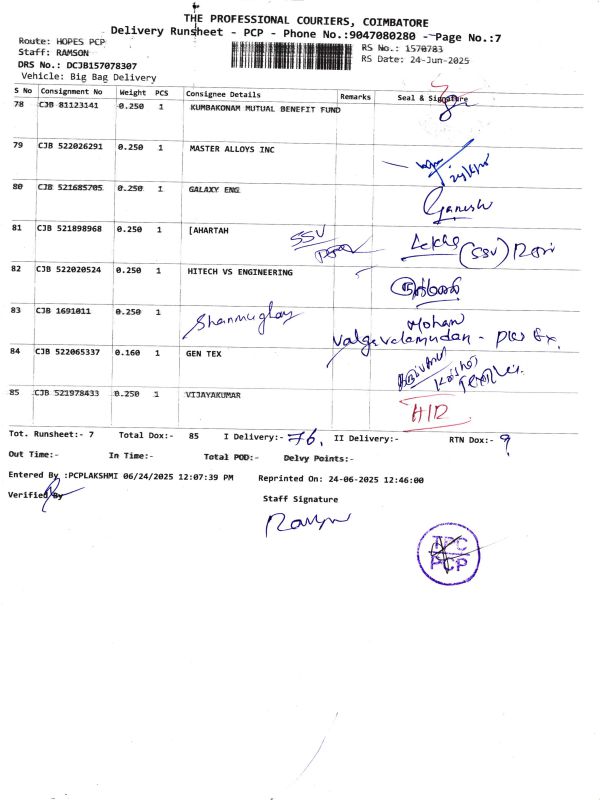 THE PROFESSIONAL COURIERS, COIMBATORE
Delivery Runsheet - PCP - Phone No.:9047080280 - Page No.:7
Route: HOPES PCP
Staff: RAMSON
DRS No.: DCJB157078307
Vehicle: Big Bag Delivery
RS No.: 1570783
RS Date: 24-Jun-2025
S No Consignment No Weight PCS Consignee Details Remarks Seal & Signature
78 CJB 81123141 0.250 1 KUMBAKONAM MUTUAL BENEFIT FUND
79 CJB 522026291 0.250 1 MASTER ALLOYS INC
80 CJB 521685705 0.250 1 GALAXY ENG Ganesh
81 CJB 521898968 0.250 1 [AHARTAH SSV (SSV)
82 CJB 522020524 0.250 1 HITECH VS ENGINEERING
83 CJB 1691011 0.250 1 Mohan
84 CJB 522065337 0.160 1 GEN TEX
85 CJB 521978433 0.250 1 VIJAYAKUMAR
Tot. Runsheet:- 7 Total Dox:- 85 I Delivery:- 76. II Delivery:- RTN Dox:- 9
Out Time:- In Time:- Total POD:- Delvy Points:-
Entered By :PCPLAKSHMI 06/24/2025 12:07:39 PM Reprinted On: 24-06-2025 12:46:00
Verified By
Staff Signature
PCP